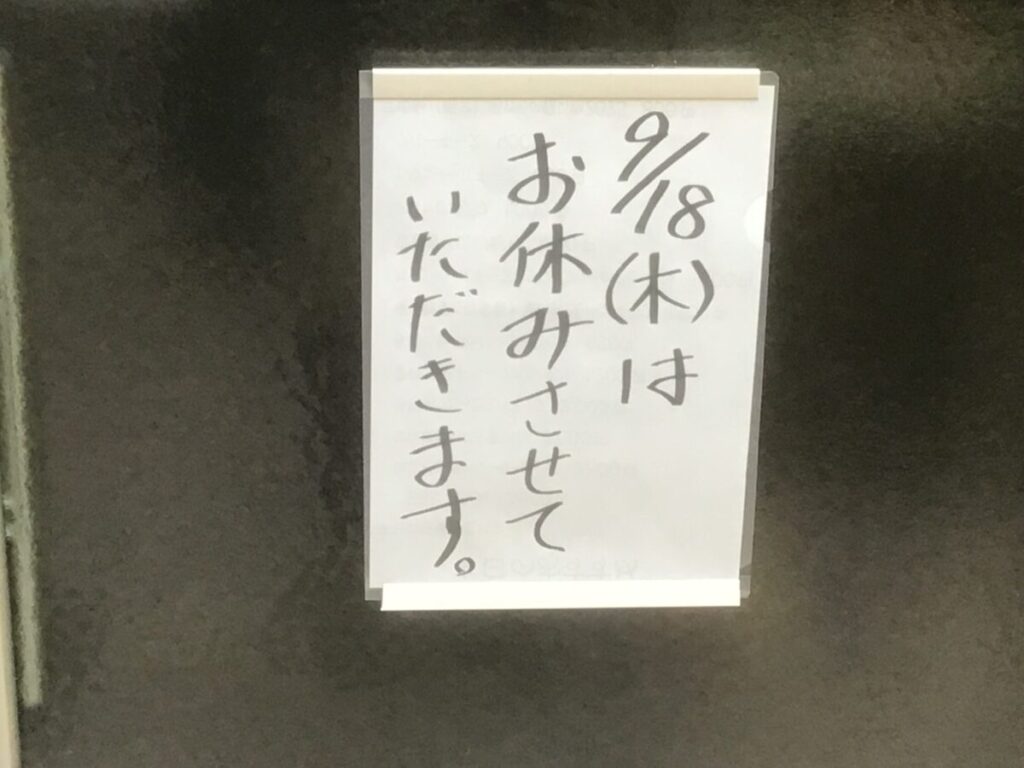 9/18(木)は
お休みさせて
いただきます。